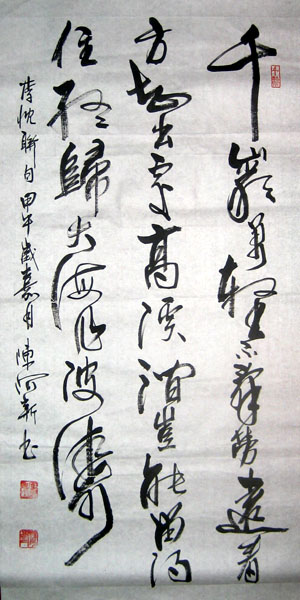 千巖萬壑不辭勞遠看
方知出處高溪澗豈能留得
住終歸大海作波濤
李忱聯句甲午歲嘉月陳新书